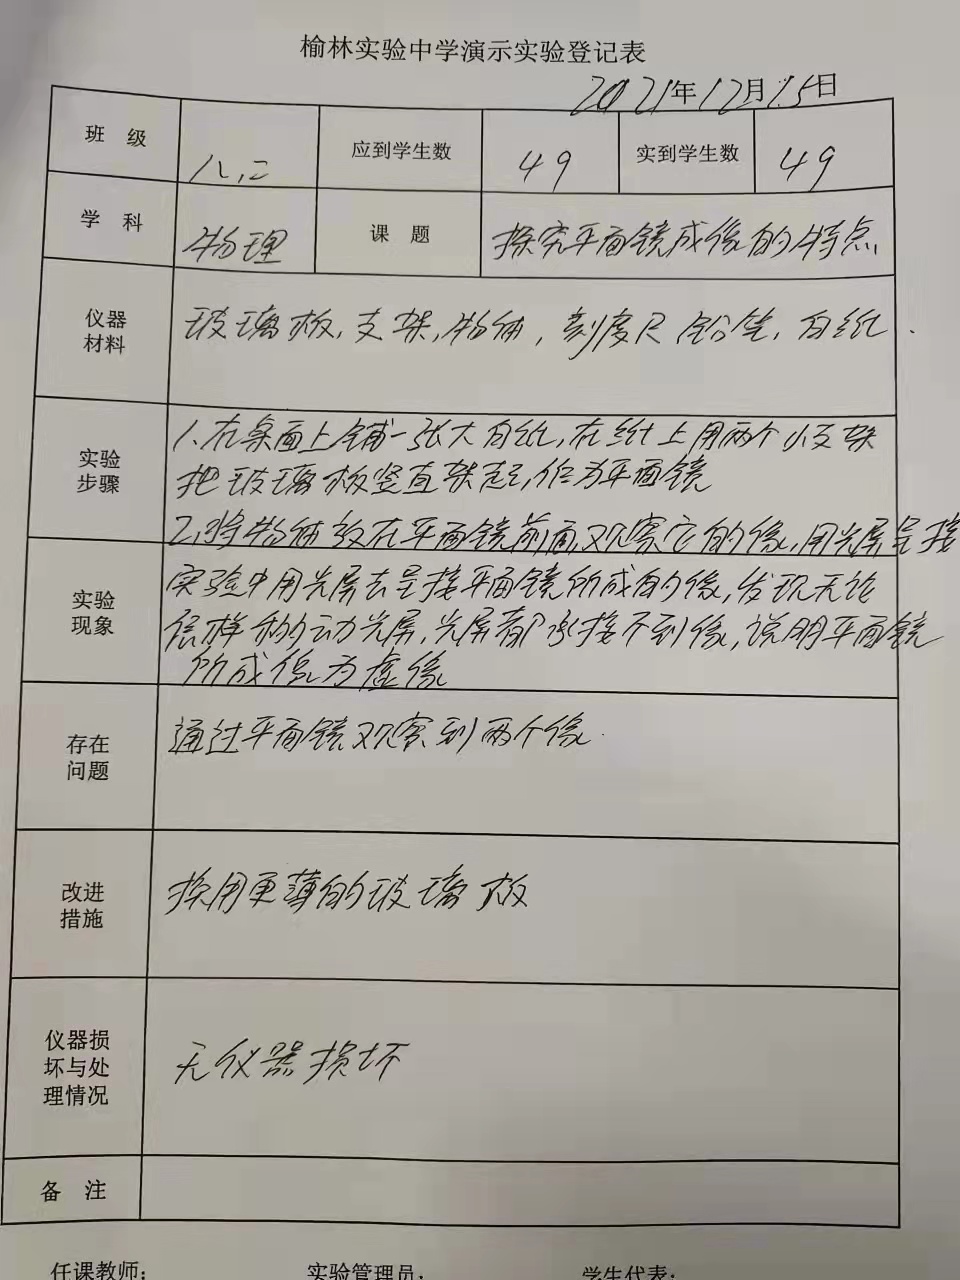 榆林实验中学演示实验登记表
2021年12月15日
班 级 八.二 应到学生数 49 实到学生数 49
学 科 物理 课 题 探究平面镜成像的特点
仪器材料 玻璃板,支架,物体,刻度尺 铅笔,白纸.
实验步骤 1.在桌面上铺一张大白纸,在纸上用两个小支架
把玻璃板竖直架起,作为平面镜
2.将物体放在平面镜前面,观察它的像,用光屏呈接
实验现象 实验中用光屏去呈接平面镜所成的像,发现无论
怎样移动光屏,光屏都承接不到像,说明平面镜
所成像为虚像
存在问题 通过平面镜观察到两个像.
改进措施 换用更薄的玻璃板
仪器损坏与处理情况 无仪器损坏
备 注
任课教师: 实验管理员: 学生代表: